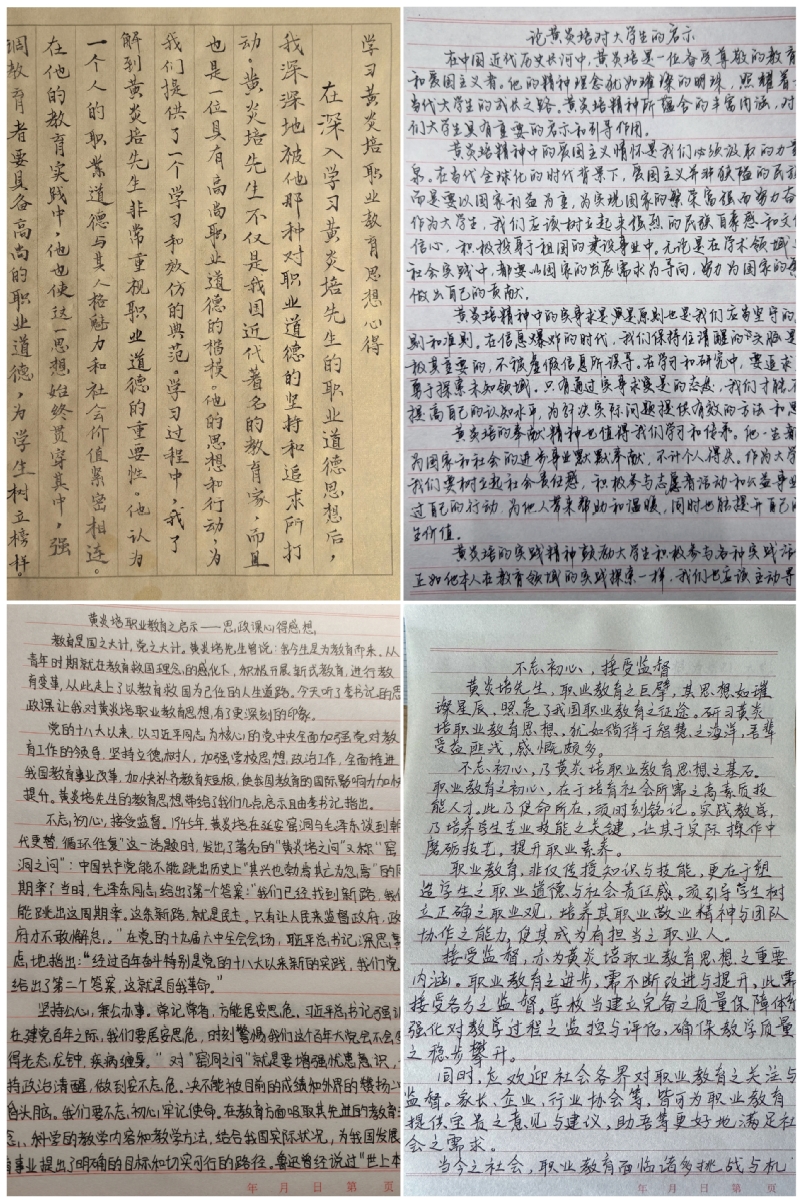 学习黄炎培职业教育思想心得
在深入学习黄炎培先生的职业道德思想后，
我深深地被他那种对职业道德的坚持和追求所打
动。黄炎培先生不仅是我国近代著名的教育家，而且
也是一位具有高尚职业道德的楷模。他的思想和行动，为
我们提供了一个学习和效仿的典范。学习过程中，我了
解到黄炎培先生非常重视职业道德的重要性。他认为
一个人的职业道德与其人格魅力和社会价值紧密相连。
在他的教育实践中，他也使这一思想始终贯穿其中，强
调教育者要具备高尚的职业道德，为学生树立榜样。
论黄炎培对大学生的启示
在中国近代历史长河中，黄炎培是一位备受尊敬的教育
和爱国主义者。他的精神理念犹如璀璨的明珠，照耀着
当代大学生的成长之路。黄炎培精神所蕴含的丰富内涵，对
们大学生具有重要的启示和引导作用。
黄炎培精神中的爱国主义情怀是我们必须汲取的力量
泉。在当代全球化的时代背景下，爱国主义并非狭隘的民族
而是要以国家利益为重，为实现国家的繁荣富强而努力奋
作为大学生，我们应该树立起强烈的民族自豪感和文化
信心，积极投身于祖国的建设事业中。无论是在学术领域
社会实践中，都要以国家的发展需求为导向，努力为国家的
做出自己的贡献。
黄炎培精神中的实事求是原则也是我们应当坚守的
则和准则。在信息爆炸的时代，我们保持住清醒的头脑是
极其重要的，不被虚假信息所误导。在学习和研究中，要追求
勇于探索未知领域。只有通过实事求是的态度，我们才能不
提高自己的认知水平，为解决实际问题提供有效的方法和思
黄炎培的奉献精神也值得我们学习和传承。他一生都
为国家和社会的进步事业默默奉献，不计个人得失。作为大学
我们要树立起社会责任感，积极参与志愿者活动和公益事业
过自己的行动，为他人带来帮助和温暖，同时也能提升自己的
生价值。
黄炎培的实践精神鼓励大学生积极参与各种实践活
正如他本人在教育领域的实践探索一样，我们也应该主动寻
黄炎培职业教育之启示——思政课心得感想
教育是国之大计，党之大计。黄炎培先生曾说：我今生是为教育而来。从
青年时期就在教育救国理念的感化下，积极开展新式教育，进行教
育变革，从此走上了以教育救国为己任的人生道路。今天听了李书记的思
政课让我对黄炎培职业教育思想，有了更深刻的印象。
党的十八大以来，以习近平同志为核心的党中央全面加强党对教
育工作的领导，坚持立德树人，加强学校思想政治工作，全面推进
我国教育事业改革，加快补齐教育短板，使我国教育的国际影响力加快
提升。黄炎培先生的教育思想带给我们几点启示且由李书记指出。
不忘初心，接受监督。1945年，黄炎培在延安窑洞与毛泽东谈到朝
代更替，循环往复"这一话题时，发出了著名的"黄炎培之问"又称"窑
洞之问"：中国共产党能不能跳出历史上"其兴也勃焉其亡为忽焉"的周
期率？当时，毛泽东同志给出了第一个答案："我们已经找到新路，我们
能跳出这周期率。这条新路，就是民主。只有让人民来监督政府，政
府才不敢懈怠。"在党的十九届六中全会会场，习近平总书记深思熟
虑，地指出："经过百年奋斗特别是党的十八大以来新的实践，我们党
给出了第二个答案，这就是自我革命。"
坚持公心，秉公办事。常记常省，方能居安思危。习近平总书记强调
在建党百年之际，我们要居安思危，时刻警惕我们这个百年大党会不会变
得老态龙钟、疾病缠身。"对"窑洞之问"就是要增强忧患意识，
持政治清醒，做到安不忘危。决不能被目前的成绩和外界的赞扬
昏头脑。我们要不忘初心，牢记使命。在教育方面吸取其先进的教育
念、科学的教学内容和教学方法，结合我国实际状况，为我国发展
育事业提出了明确的目标和切实可行的路径。鲁迅曾经说过"世上本
年 月 日 第 页
不忘初心，接受监督
黄炎培先生，职业教育之巨擘，其思想如璀
璨星辰，照亮了我国职业教育之征途。研习黄炎
培职业教育思想，犹如徜徉于智慧之海洋，吾辈
受益匪浅，感慨颇多。
不忘初心，乃黄炎培职业教育思想之基石。
职业教育之初心，在于培育社会所需之高素质技
能人才。此乃使命所在，须时刻铭记。实践教学，
乃培养学生专业技能之关键，让其于实际操作中
磨砺技艺，提升职业素养。
职业教育，非仅传授知识与技能，更在于塑
造学生之职业道德与社会责任感。须引导学生树
立正确之职业观，培养其职业敬业精神与团队
协作之能力，使其成为有担当之职业人。
接受监督，亦为黄炎培职业教育思想之重要
内涵。职业教育之进步，需不断改进与提升，此需
接受各方之监督。学校当建立完备之质量保障体
强化对教学过程之监控与评估，确保教学质量
之稳步攀升。
同时，应欢迎社会各界对职业教育之关注与
监督。家长、企业、行业协会等，皆可为职业教育
提供宝贵之意见与建议，助吾等更好地满足社
会之需求。
当今之社会，职业教育面临诸多挑战与机
年 月 日 第 页